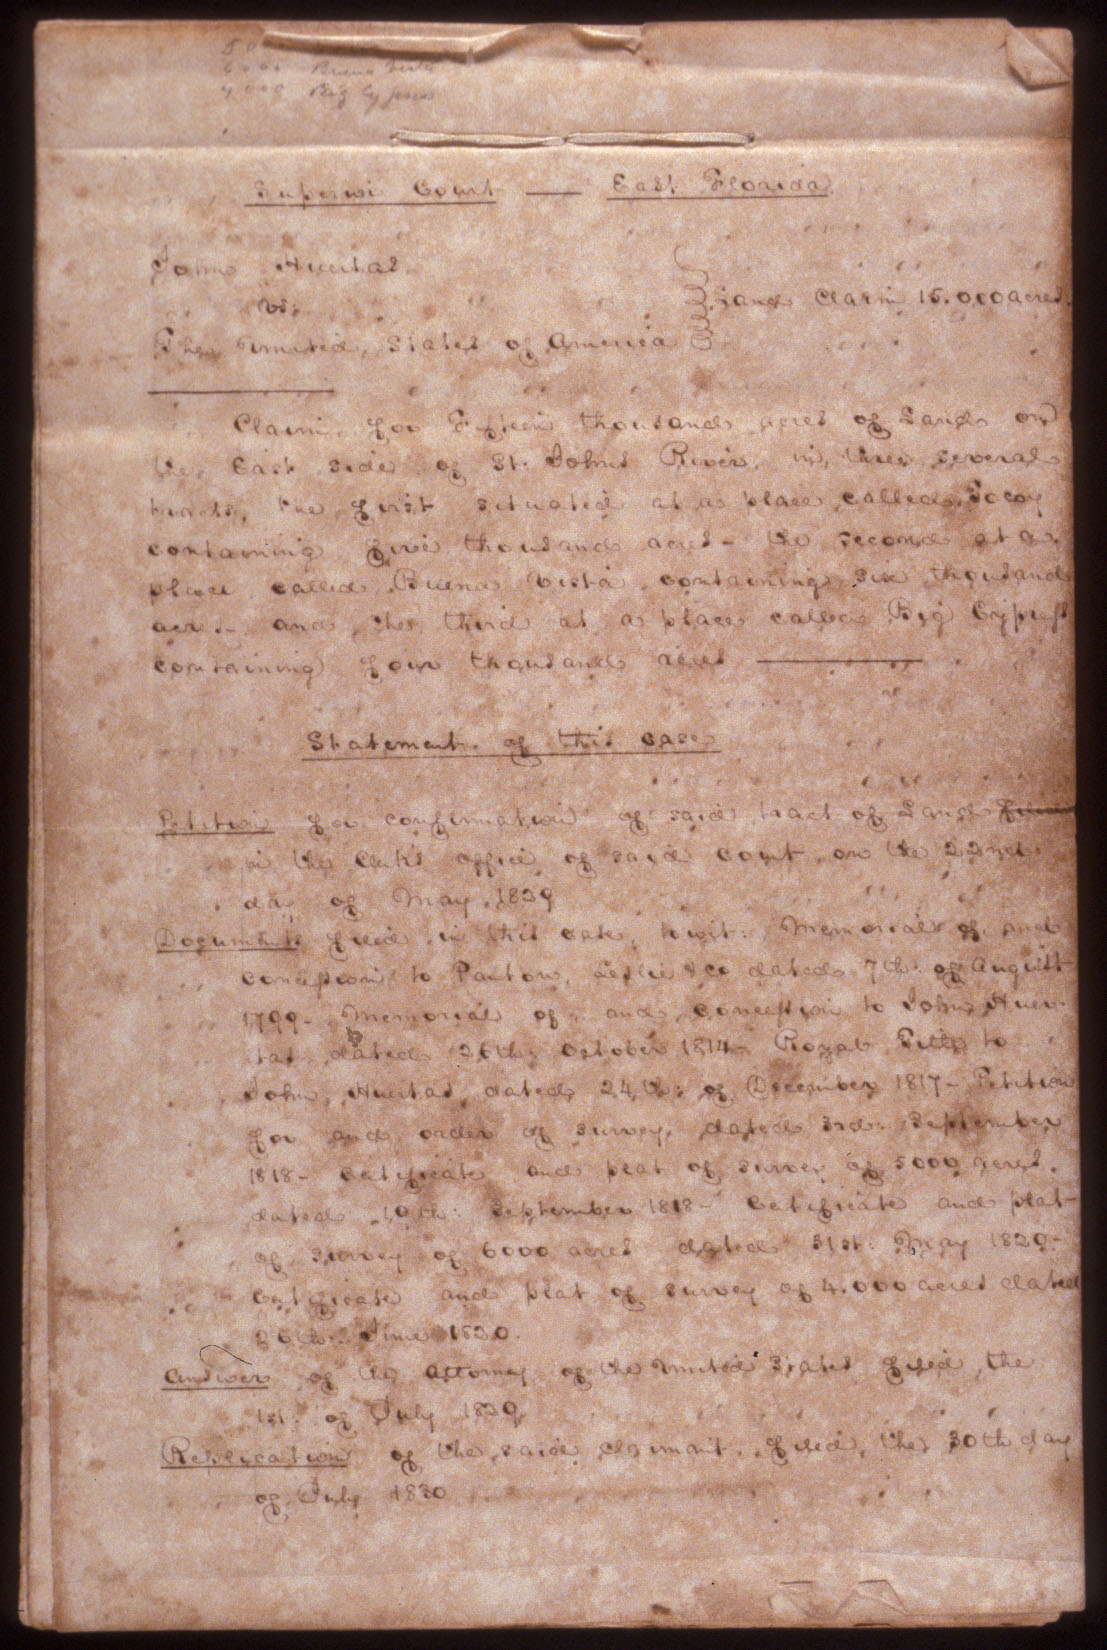 6000 Buena Vista
4000 Big Cypress
Superior Court — East Florida
John Huertas
vs:
The United States of America
Land Claim 15.000 acres.
Claim for Fifteen thousand acres of Land on
the East side of St. Johns River, in three several
tracts, the first situated at a place called Tocoy
containing five thousand acres - the second at a
place called Buena Vista containing six thousand
acres - and the third at a place called Big Cypress
containing four thousand acres —
Statement of this case
Petition for confirmation of said tract of Land filed
in the Clerks office of said court on the 22nd
day of May 1829
Documents filed in this case, towit: Memorial of and
concession to Panton, Leslie & co dated 7th of August
1799 - Memorial of and concession to John Huer-
tas dated 26th: October 1814 - Royal Title to
John Huertas dated 24th: of December 1817 - Petition
for and order of survey, dated 3rd: September
1818 - Certificate and plat of survey of 5000 acres.
dated 10th: September 1818 - Certificate and plat
of survey of 6000 acres dated 31st: May 1820 -
Certificate and plat of survey of 4.000 acres dated
20th: June 1820.
Answer of the Attorney of the United States filed the
1st: of July 1829
Replication of the said claimant. filed, the 30th day
of July 1830